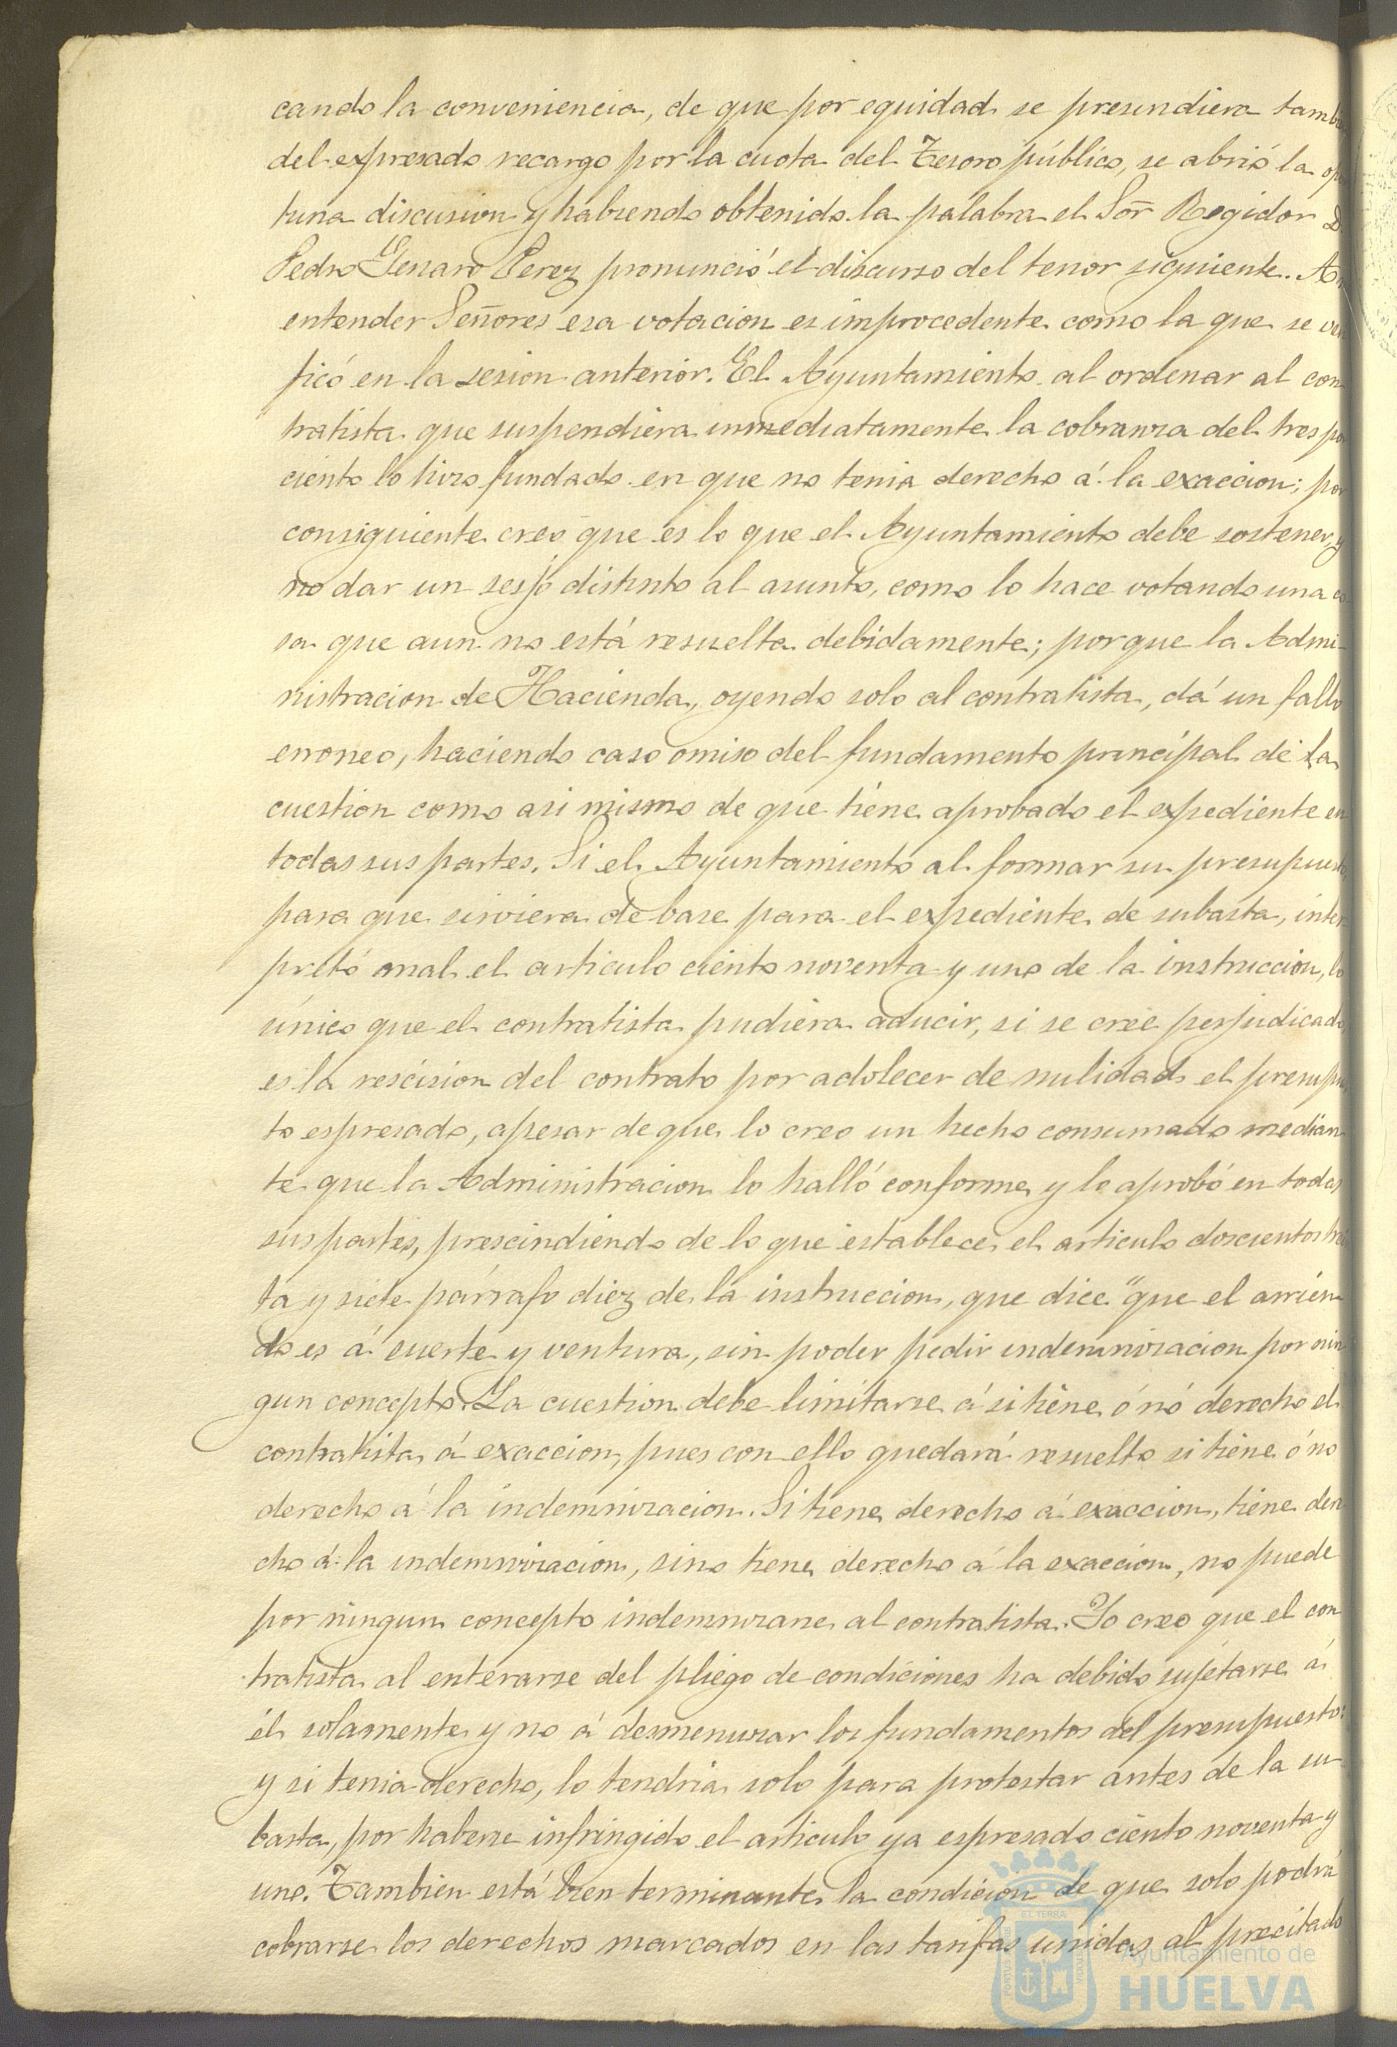 cando la conveniencia, de que por equidad se presindiera tambi
del expresado recargo por la cuota del Tesoro público, se abrió la opor
tuna discusion y habiendo obtenido la palabra el Sor̃ Regidor D
Pedro Genaro Perez pronunció el discurso del tenor siguiente. A mi
entender Señores esa votacion es improcedente como la que se veri
ficó en la sesion anterior. El Ayuntamiento al ordenar al con
tratista que suspendiera inmediatamente la cobranza del tres por
ciento lo hizo fundado en que no tenia derecho á la exaccion; por
consiguiente creo que es lo que el Ayuntamiento debe sostener, y
no dar un sesjo distinto al asunto, como lo hace votando una co
sa que aun no está resuelta debidamente; porque la Admi-
nistracion de Hacienda, oyendo solo al contratista, dá un fallo
erroneo, haciendo caso omiso del fundamento principal de la
cuestion como asi mismo de que tiene aprobado el expediente en
todas sus partes. Si el Ayuntamiento al formar su presupuesto
para que sirviera de base para el expediente de subasta, inter
pretó mal el articulo ciento noventa y uno de la instruccion, lo
único que el contratista pudiera aducir, si se cree perjudicado
es la rescision del contrato por adolecer de nulidad el presupues
to espresado, apesar de que lo creo un hecho consumado median
te que la Administracion lo halló conforme y lo aprobó en todas
sus partes, prescindiendo de lo que establece el articulo doscientos trein
ta y siete párrafo diez de la instruccion, que dice "que el arrien
do es á suerte y ventura, sin poder pedir indemnizacion por nin
gun concepto. La cuestion debe limitarse á si tiene ó nó derecho el
contratista á exaccion, pues con ello quedará resuelto si tiene ó no
derecho á la indemnizacion. Si tiene derecho á exaccion, tiene dere
cho á la indemnizacion, sino tiene derecho á la exaccion, no puede
por ningun concepto indemnizarse al contratista. Yo creo que el con
tratista al enterarse del pliego de condiciones ha debido sujetarse á
él solamente y no á desmenuzar los fundamentos del presupuesto;
y si tenia derecho, lo tendria solo para protestar antes de la su
basta, por haberse infringido el articulo ya espresado ciento noventa y
uno. Tambien está bien terminante la condicion de que solo podrá
cobrarse los derechos marcados en las tarifas unidas al precitado
Ayuntamiento de
HUELVA